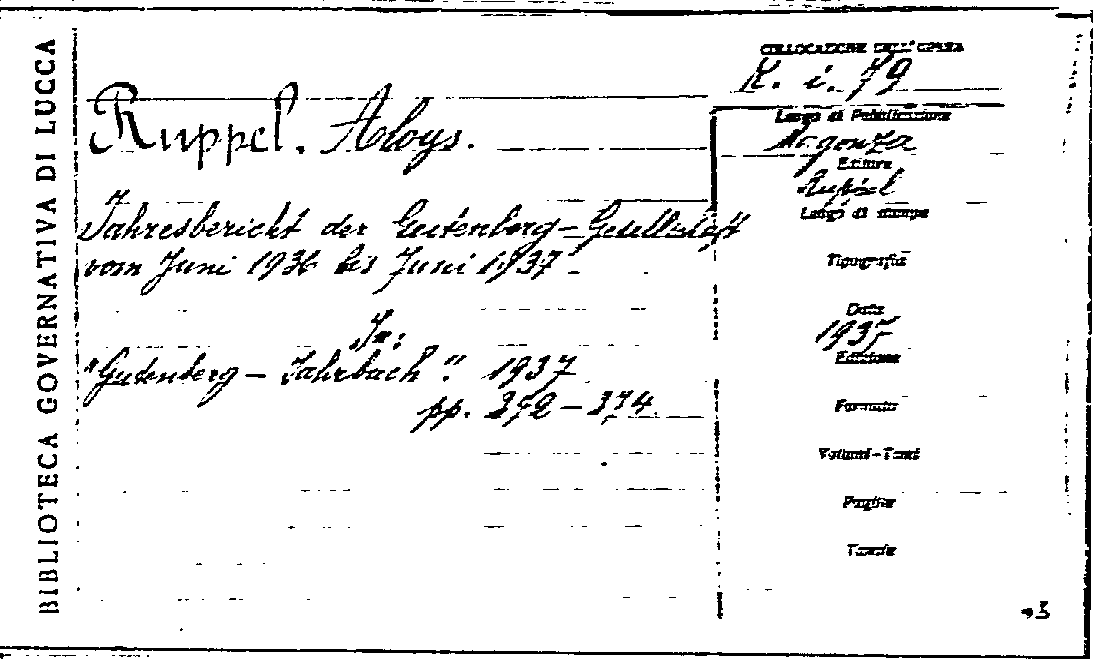 BIBLIOTECA GOVERNATIVA DI LUCCA
COLLOCAZIONE DELL'OPERA
R. i. 79
Ruppel. Aloys.
Jahresbericht der Gutenberg-Gesellschaft
vom Juni 1936 bis Juni 1937
In:
"Gutenberg - Jahrbuch". 1937
pp. 372-374
Luogo di Pubblicazione
Magonza
Editore
Ruppel
Luogo di stampa
Tipografia
Data
1937
Edizione
Formato
Volumi-Tomi
Pagine
Tavole